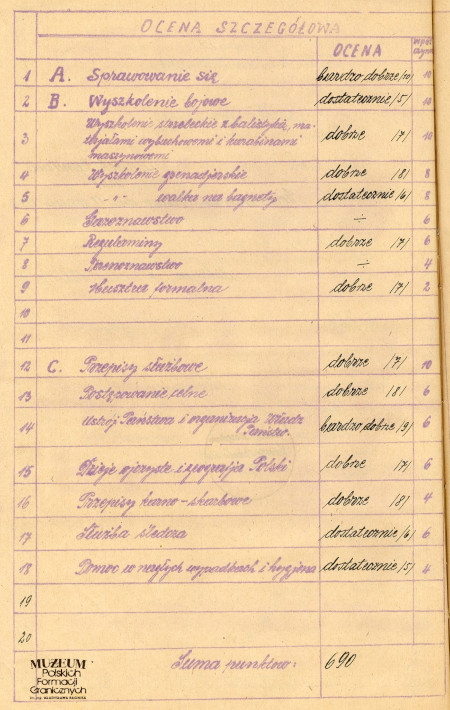 OCENA SZCZEGÓŁOWA
OCENA
1 A. Sprawowanie się bardzo dobrze /10/ 10
2 B. Wyszkolenie bojowe dostatecznie /5/ 10
3 Wyszkolenie strzeleckie z balistyką, ma-
terjałami wybuchowemi i karabinami
maszynowemi dobrze /7/ 10
4 Wyszkolenie grenadjerskie dobrze /8/ 8
5 -"- walka na bagnety dostatecznie /6/ 8
6 Gazoznawstwo ÷ 6
7 Regulaminy dobrze /7/ 6
8 Terenoznawstwo ÷ 4
9 Musztra formalna dobrze /7/ 2
10
11
12 C. Przepisy służbowe dobrze /7/ 10
13 Postępowanie celne dobrze /8/ 6
14 Ustrój Państwa i organizacja Władz
Państw. bardzo dobrze /9/ 6
15 Dzieje ojczyste i geografja Polski dobrze /7/ 6
16 Przepisy karno-skarbowe dobrze /8/ 4
17 Służba śledcza dostatecznie /6/ 6
18 Pomoc w nagłych wypadkach i hygjena dostatecznie /5/ 4
19
20
Suma punktów: 690
MUZEUM
Polskich
Formacji
Granicznych